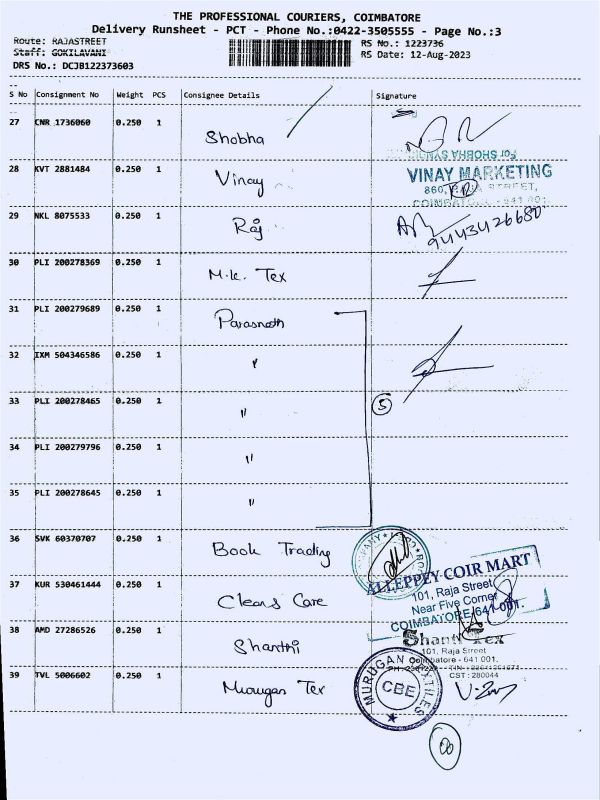 THE PROFESSIONAL COURIERS, COIMBATORE
Delivery Runsheet - PCT - Phone No.:0422-3505555 - Page No.:3
Route: RAJASTREET RS No.: 1223736
Staff: GOKILAVANI RS Date: 12-Aug-2023
DRS No.: DCJB122373603
S No Consignment No Weight PCS Consignee Details Signature
27 CNR 1736060 0.250 1 Shobha
For SHOBHA
28 KVT 2881484 0.250 1 Vinay
VINAY MARKETING
860, RAJA STREET,
COIMBATORE - 641 001
29 NKL 8075533 0.250 1 Raj
9443426680
30 PLI 200278369 0.250 1 M.K. Tex
31 PLI 200279689 0.250 1 Parasnath
32 IXM 504346586 0.250 1 "
33 PLI 200278465 0.250 1 " 5
34 PLI 200279796 0.250 1 "
35 PLI 200278645 0.250 1 "
36 SVK 60370707 0.250 1 Book Trading
ALLEPPEY COIR MART
101, Raja Street
Near Five Corner
COIMBATORE/641-001.
37 KUR 530461444 0.250 1 Cleans Care
38 AMD 27286526 0.250 1 Shanthi
Shanti Tex
101, Raja Street
Coimbatore - 641 001.
CST : 280044
39 TVL 5006602 0.250 1 Murugan Tex
MURUGAN TEXTILES
CBE